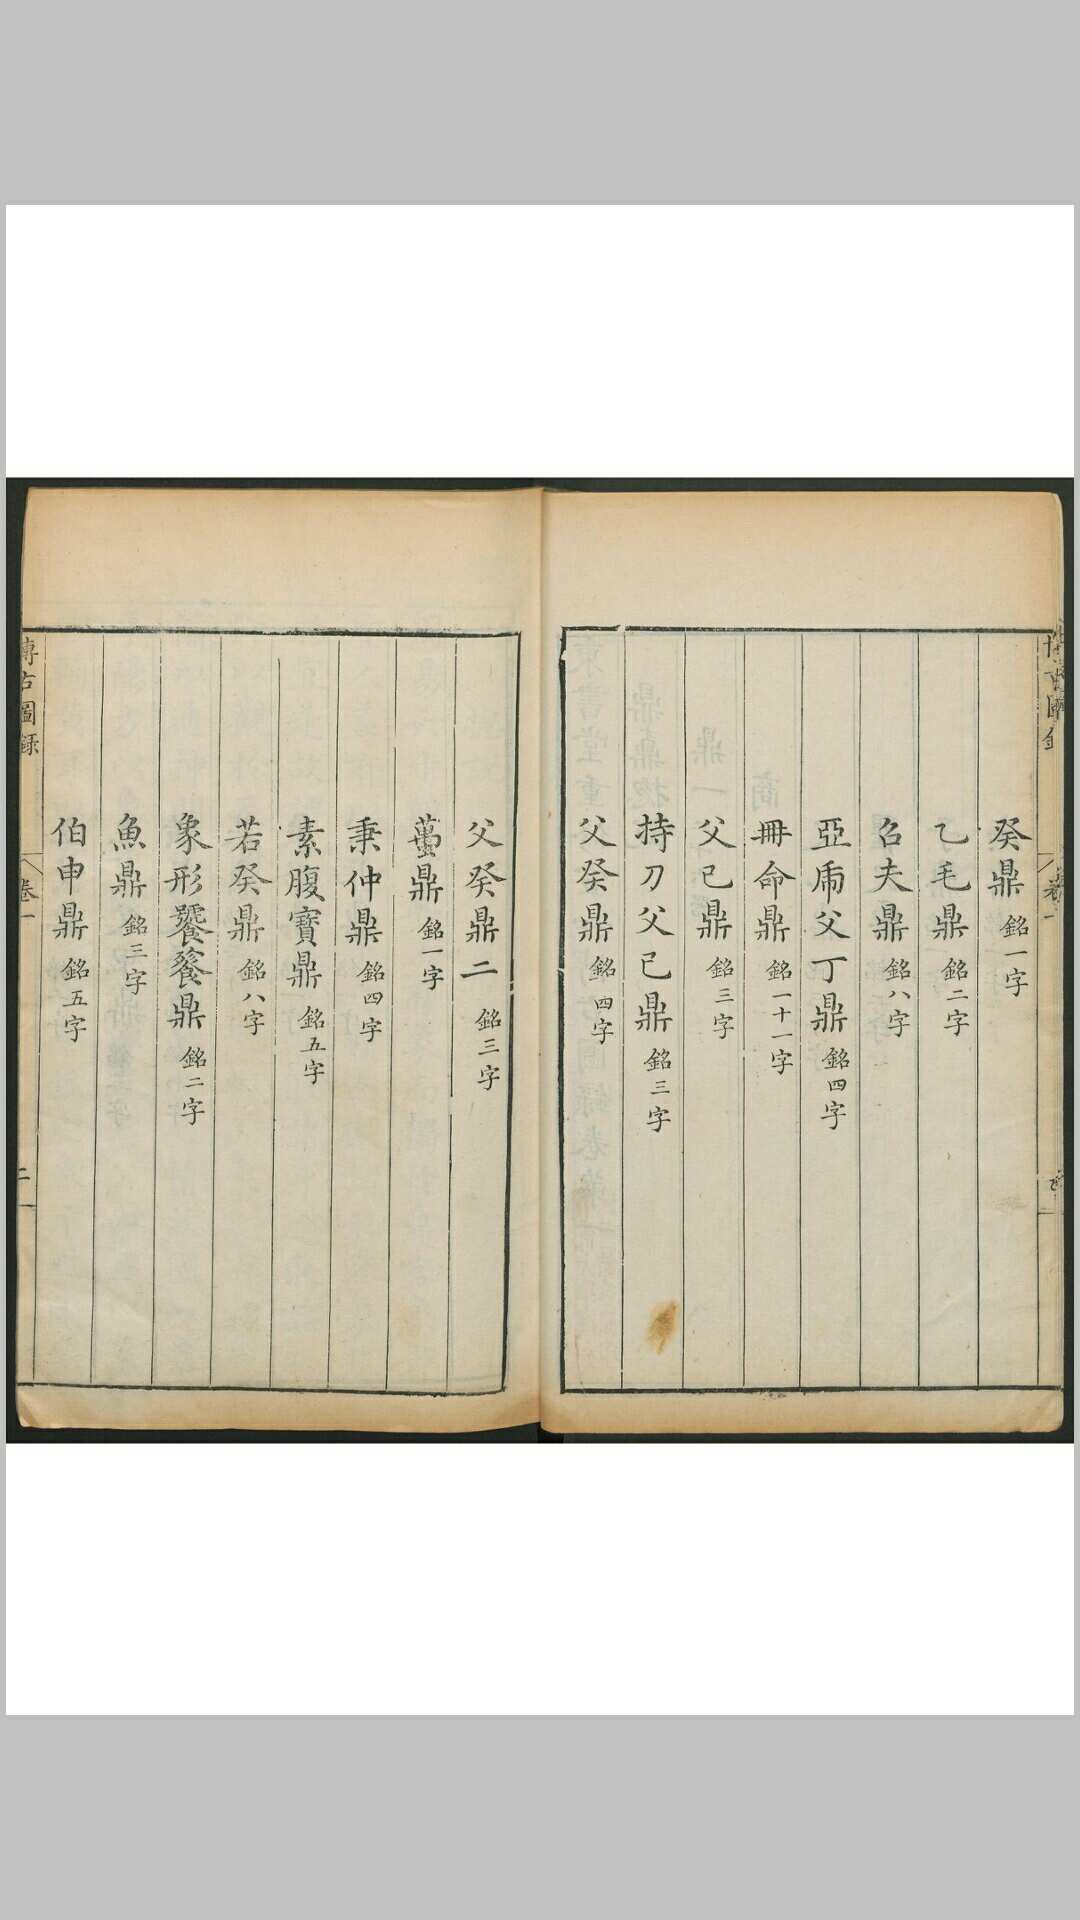 癸鼎銘一字
乙毛鼎銘二字
召夫鼎銘八字
亞虎父丁鼎銘四字
冊命鼎銘一十一字
父己鼎銘三字
持刀父己鼎銘三字
父癸鼎銘四字
父癸鼎二銘三字
鼎銘一字
秉仲鼎銘四字
素腹寶鼎銘五字
若癸鼎銘八字
象形饕餮鼎銘二字
魚鼎銘三字
伯申鼎銘五字
博古圖錄
卷一
二